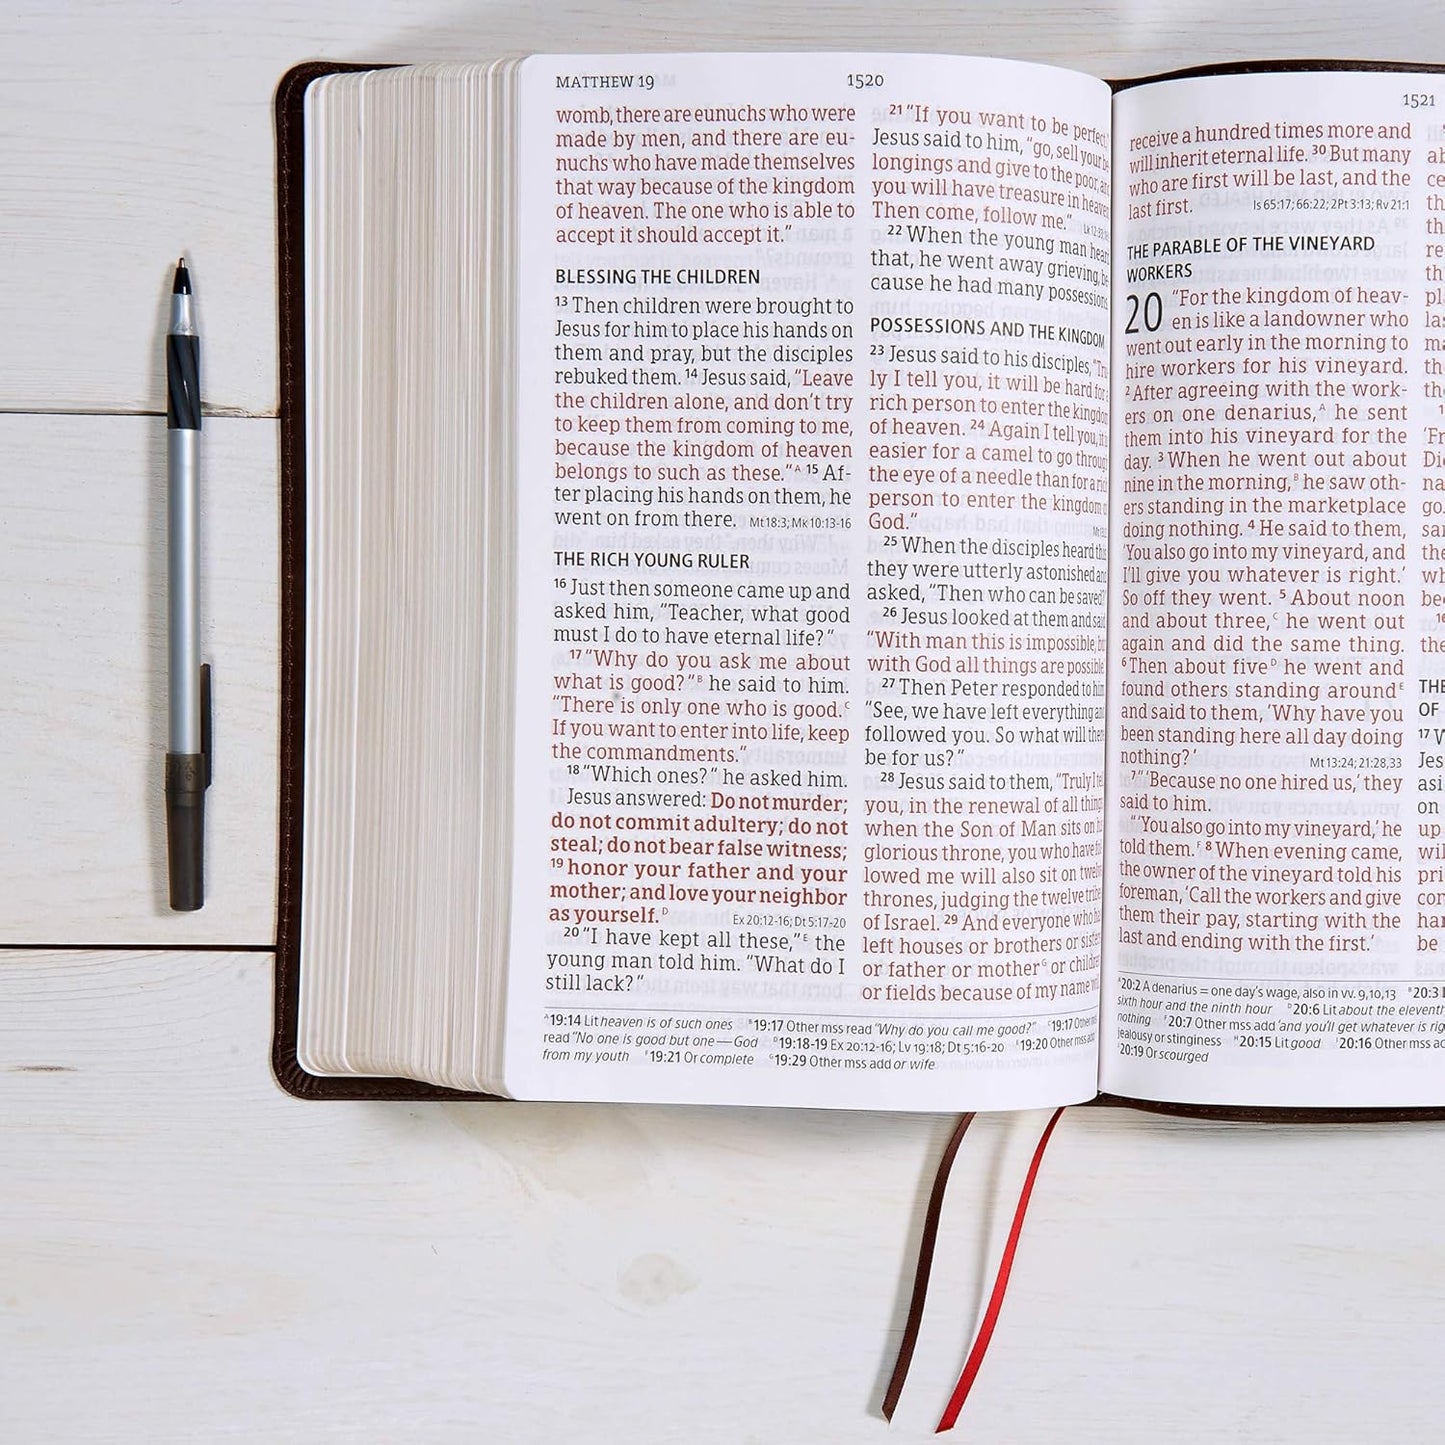 MATTHEW 19
1520
womb, there are eunuchs who were
made by men, and there are eu-
nuchs who have made themselves
that way because of the kingdom
of heaven. The one who is able to
accept it should accept it.”
BLESSING THE CHILDREN
13 Then children were brought to
Jesus for him to place his hands on
them and pray, but the disciples
rebuked them. 14 Jesus said, “Leave
the children alone, and don’t try
to keep them from coming to me,
because the kingdom of heaven
belongs to such as these.” A 15 Af-
ter placing his hands on them, he
went on from there. Mt 18:3; Mk 10:13-16
THE RICH YOUNG RULER
16 Just then someone came up and
asked him, “Teacher, what good
must I do to have eternal life?”
17 “Why do you ask me about
what is good?” B he said to him.
“There is only one who is good. C
If you want to enter into life, keep
the commandments.”
18 “Which ones?” he asked him.
Jesus answered: Do not murder;
do not commit adultery; do not
steal; do not bear false witness;
19 honor your father and your
mother; and love your neighbor
as yourself. D Ex 20:12-16; Dt 5:17-20
20 “I have kept all these,” E the
young man told him. “What do I
still lack?”
21 “If you want to be perfect,”
Jesus said to him, “go, sell your be
longings and give to the poor, and
you will have treasure in heaven
Then come, follow me.”
22 When the young man heard
that, he went away grieving, be
cause he had many possessions
POSSESSIONS AND THE KINGDOM
23 Jesus said to his disciples, “Tru
ly I tell you, it will be hard for a
rich person to enter the kingdom
of heaven. 24 Again I tell you, it is
easier for a camel to go through
the eye of a needle than for a rich
person to enter the kingdom of
God.”
25 When the disciples heard this
they were utterly astonished and
asked, “Then who can be saved?
26 Jesus looked at them and said
“With man this is impossible, but
with God all things are possible.
27 Then Peter responded to him
“See, we have left everything and
followed you. So what will there
be for us?”
28 Jesus said to them, “Truly I tell
you, in the renewal of all things
when the Son of Man sits on his
glorious throne, you who have fol
lowed me will also sit on twelve
thrones, judging the twelve tribes
of Israel. 29 And everyone who has
left houses or brothers or sisters
or father or mother G or children
or fields because of my name will
A 19:14 Lit heaven is of such ones B 19:17 Other mss read “Why do you call me good?” C 19:17 Other mss
read “No one is good but one—God D 19:18-19 Ex 20:12-16; Lv 19:18; Dt 5:16-20 E 19:20 Other mss add
from my youth F 19:21 Or complete G 19:29 Other mss add or wife
1521
receive a hundred times more and
will inherit eternal life. 30 But many
who are first will be last, and the
last first. Is 65:17; 66:22; 2Pt 3:13; Rv 21:1
THE PARABLE OF THE VINEYARD
WORKERS
20 “For the kingdom of heav-
en is like a landowner who
went out early in the morning to
hire workers for his vineyard.
2 After agreeing with the work-
ers on one denarius, A he sent
them into his vineyard for the
day. 3 When he went out about
nine in the morning, B he saw oth-
ers standing in the marketplace
doing nothing. 4 He said to them,
‘You also go into my vineyard, and
I’ll give you whatever is right.’
So off they went. 5 About noon
and about three, C he went out
again and did the same thing.
6 Then about five D he went and
found others standing around E
and said to them, ‘Why have you
been standing here all day doing
nothing?’ Mt 13:24; 21:28,33
7 “‘Because no one hired us,’ they
said to him.
“‘You also go into my vineyard,’ he
told them. F 8 When evening came,
the owner of the vineyard told his
foreman, ‘Call the workers and give
them their pay, starting with the
last and ending with the first.’
A 20:2 A denarius = one day’s wage, also in vv. 9,10,13 B 20:3
sixth hour and the ninth hour D 20:6 Lit about the eleventh
nothing F 20:7 Other mss add ‘and you’ll get whatever is right
jealousy or stinginess H 20:15 Lit good I 20:16 Other mss
20:19 Or scourged